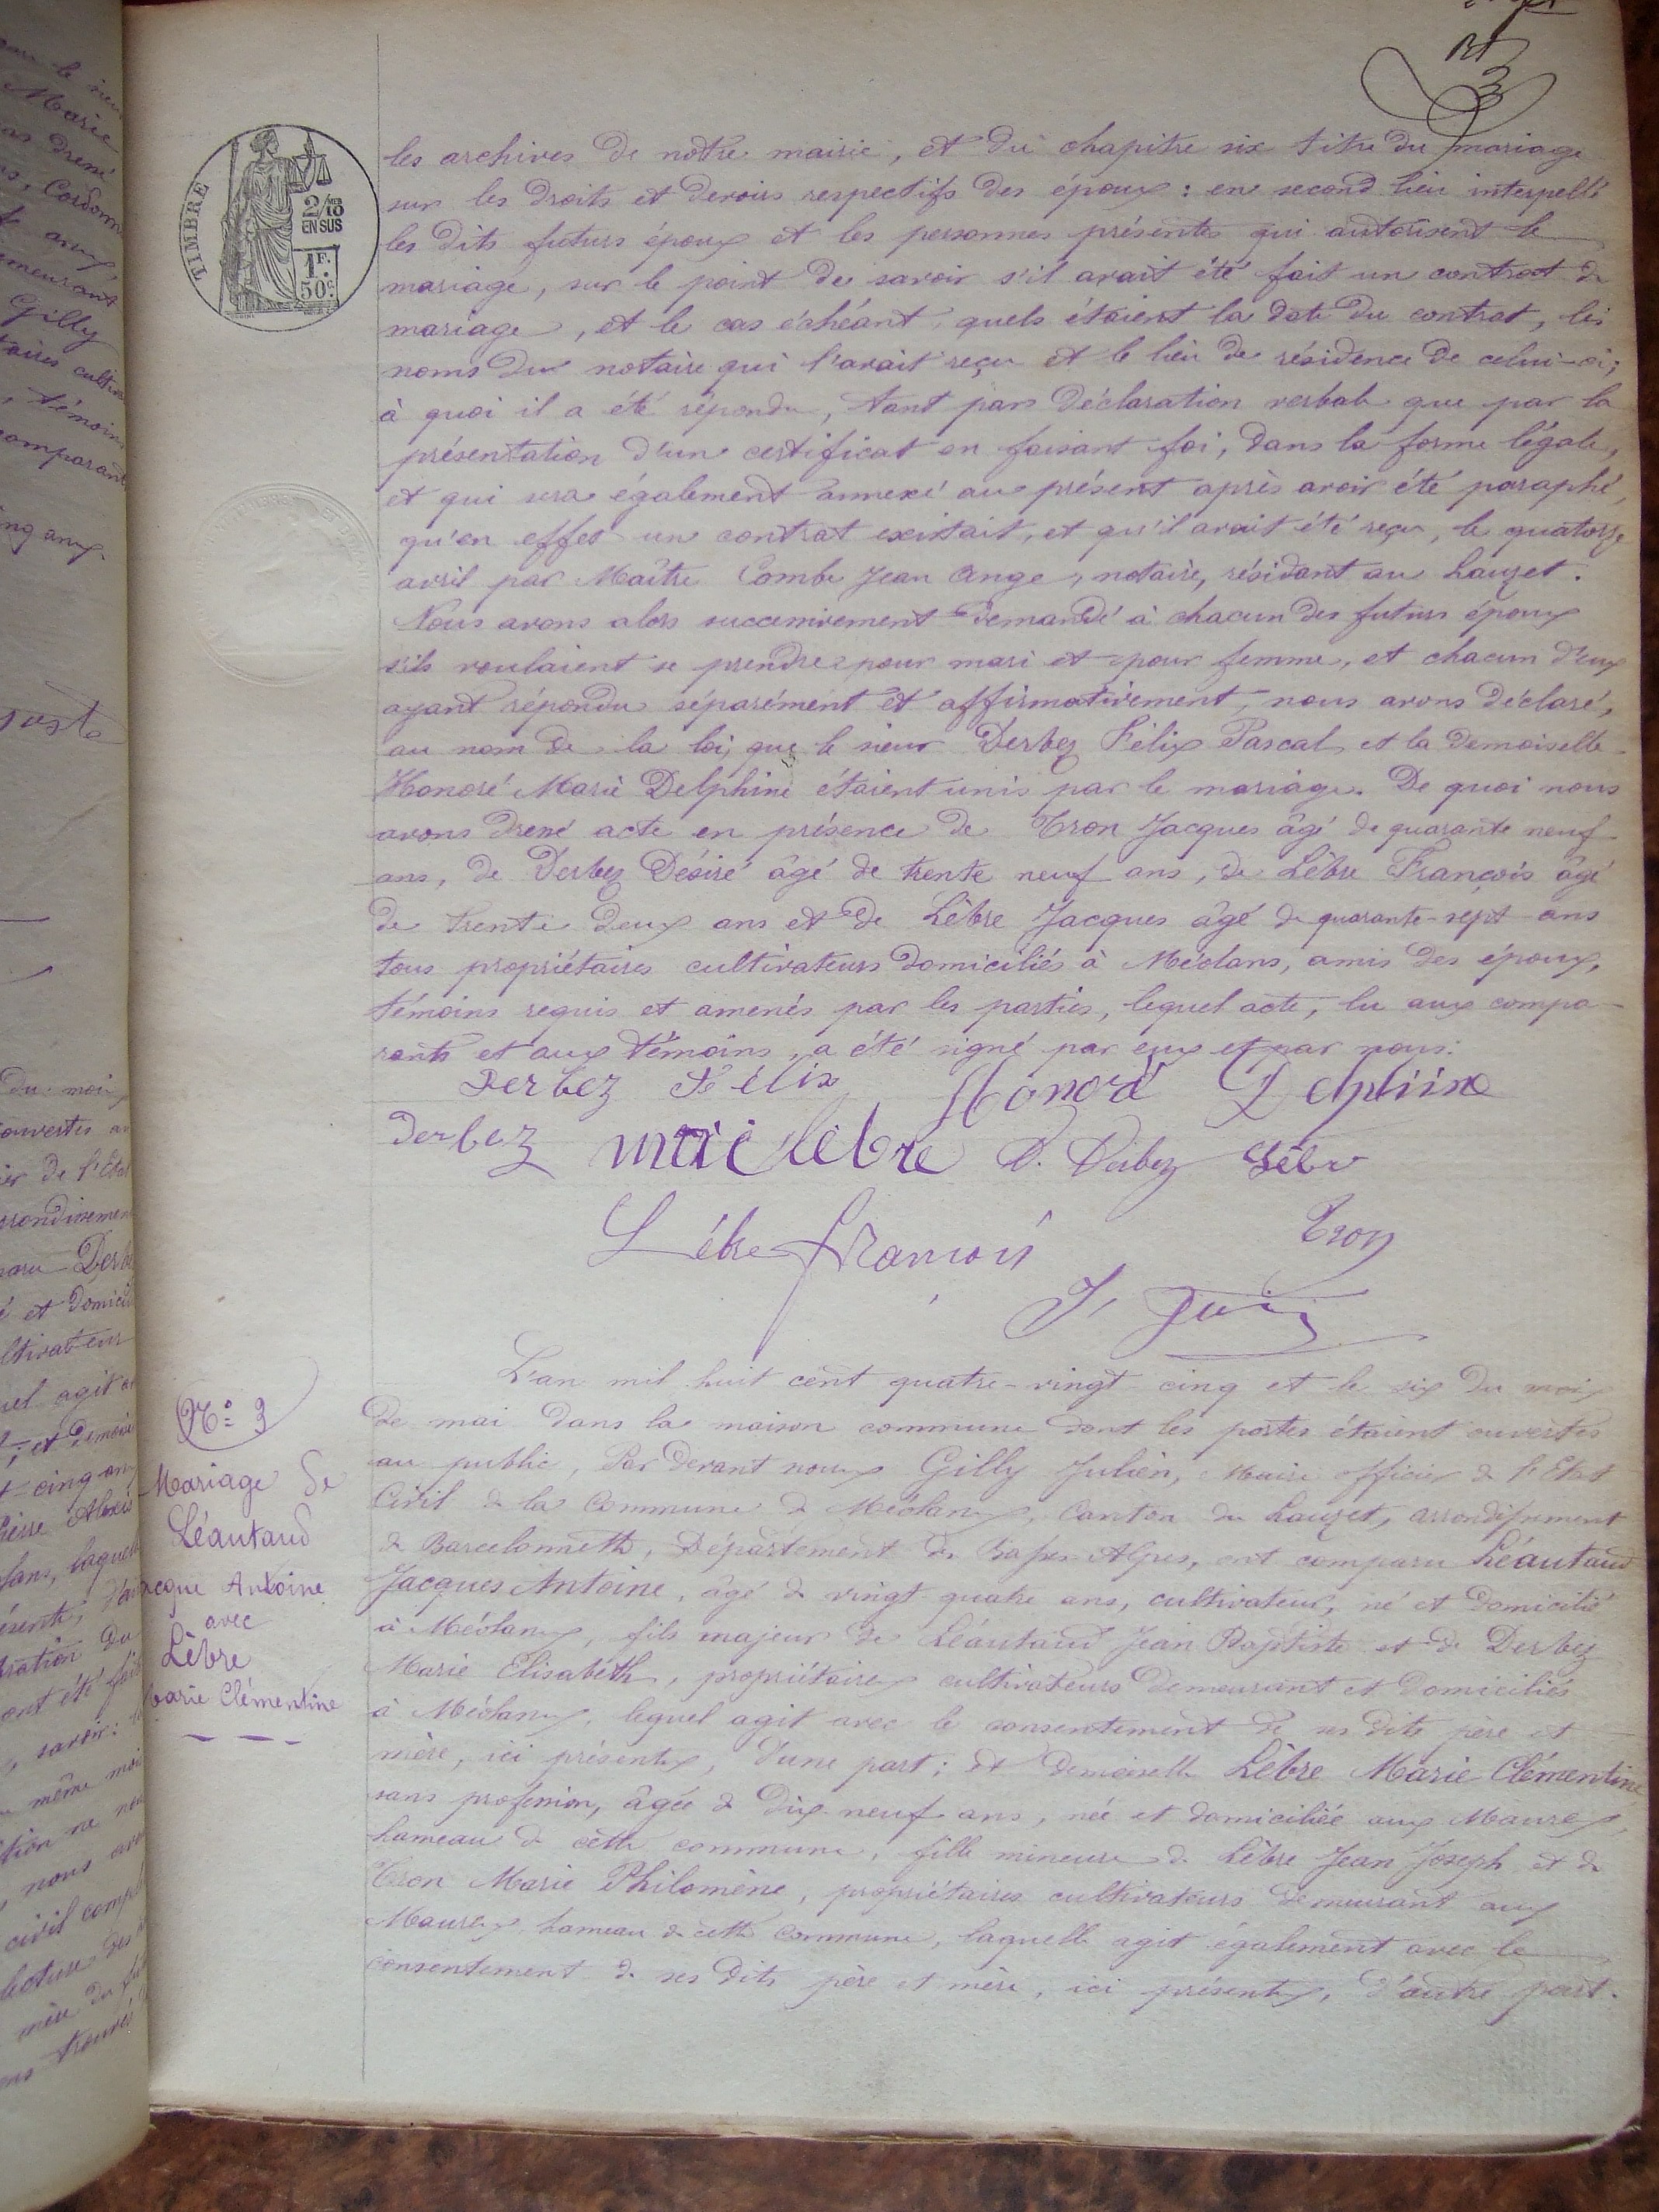 3
TIMBRE
2/10
EN SUS
1F.
50c.
les archives de notre mairie, et du chapitre six titre du mariage
sur les droits et devoirs respectifs des époux : en second lieu interpellé
les dits futurs époux et les personnes présentes qui autorisent le
mariage, sur le point de savoir s'il avait été fait un contrat de
mariage, et le cas échéant, quels étaient la date du contrat, les
noms du notaire qui l'avait reçu et le lieu de résidence de celui-ci;
à quoi il a été répondu, tant par déclaration verbale que par la
présentation d'un certificat en faisant foi, dans la forme légale,
et qui sera également annexé au présent après avoir été paraphé,
qu'en effet un contrat existait, et qu'il avait été reçu, le quatorze
avril par Maître Combe Jean Ange, notaire, résidant au Lauzet.
Nous avons alors successivement demandé à chacun des futurs époux
s'ils voulaient se prendre pour mari et pour femme, et chacun d'eux
ayant répondu séparément et affirmativement, nous avons déclaré,
au nom de la loi, que le sieur Derbez Félix Pascal et la demoiselle
Honoré Marie Delphine étaient unis par le mariage. De quoi nous
avons dressé acte en présence de Tron Jacques âgé de quarante neuf
ans, de Derbez Désiré âgé de trente neuf ans, de Lèbre François âgé
de trente deux ans et de Lèbre Jacques âgé de quarante-sept ans
tous propriétaires cultivateurs domiciliés à Méolans, amis des époux,
témoins requis et amenés par les parties, lequel acte, lu aux compa-
rants et aux témoins, a été signé par eux et par nous.
Derbez Félix Honoré Delphine
Derbez Lèbre D. Derbez Lèbre
Lèbre françois Tron
N° 3
Mariage de
Léautaud
acque Antoine
avec
Lèbre
Marie Clémentine
L'an mil huit cent quatre-vingt cinq et le six du mois
de mai dans la maison commune dont les portes étaient ouvertes
au public, Par devant nous Gilly Julien, Maire officier de l'Etat
Civil de la Commune de Méolans, Canton du Lauzet, arrondissement
de Barcelonnette, Département des Basses-Alpes, ont comparu Léautaud
Jacques Antoine, âgé de vingt quatre ans, cultivateur, né et domicilié
à Méolans, fils majeur de Léautaud Jean Baptiste et de Derbez
Marie Elisabeth, propriétaires cultivateurs demeurant et domiciliés
à Méolans, lequel agit avec le consentement de ses dits père et
mère, ici présents, d'une part; et demoiselle Lèbre Marie Clémentine
sans profession, âgée de dix-neuf ans, née et domiciliée aux Maures,
hameau de cette commune, fille mineure de Lèbre Jean Joseph et de
Tron Marie Philomène, propriétaires cultivateurs demeurant aux
Maures, hameau de cette commune, laquelle agit également avec le
consentement de ses dits père et mère, ici présents, d'autre part.